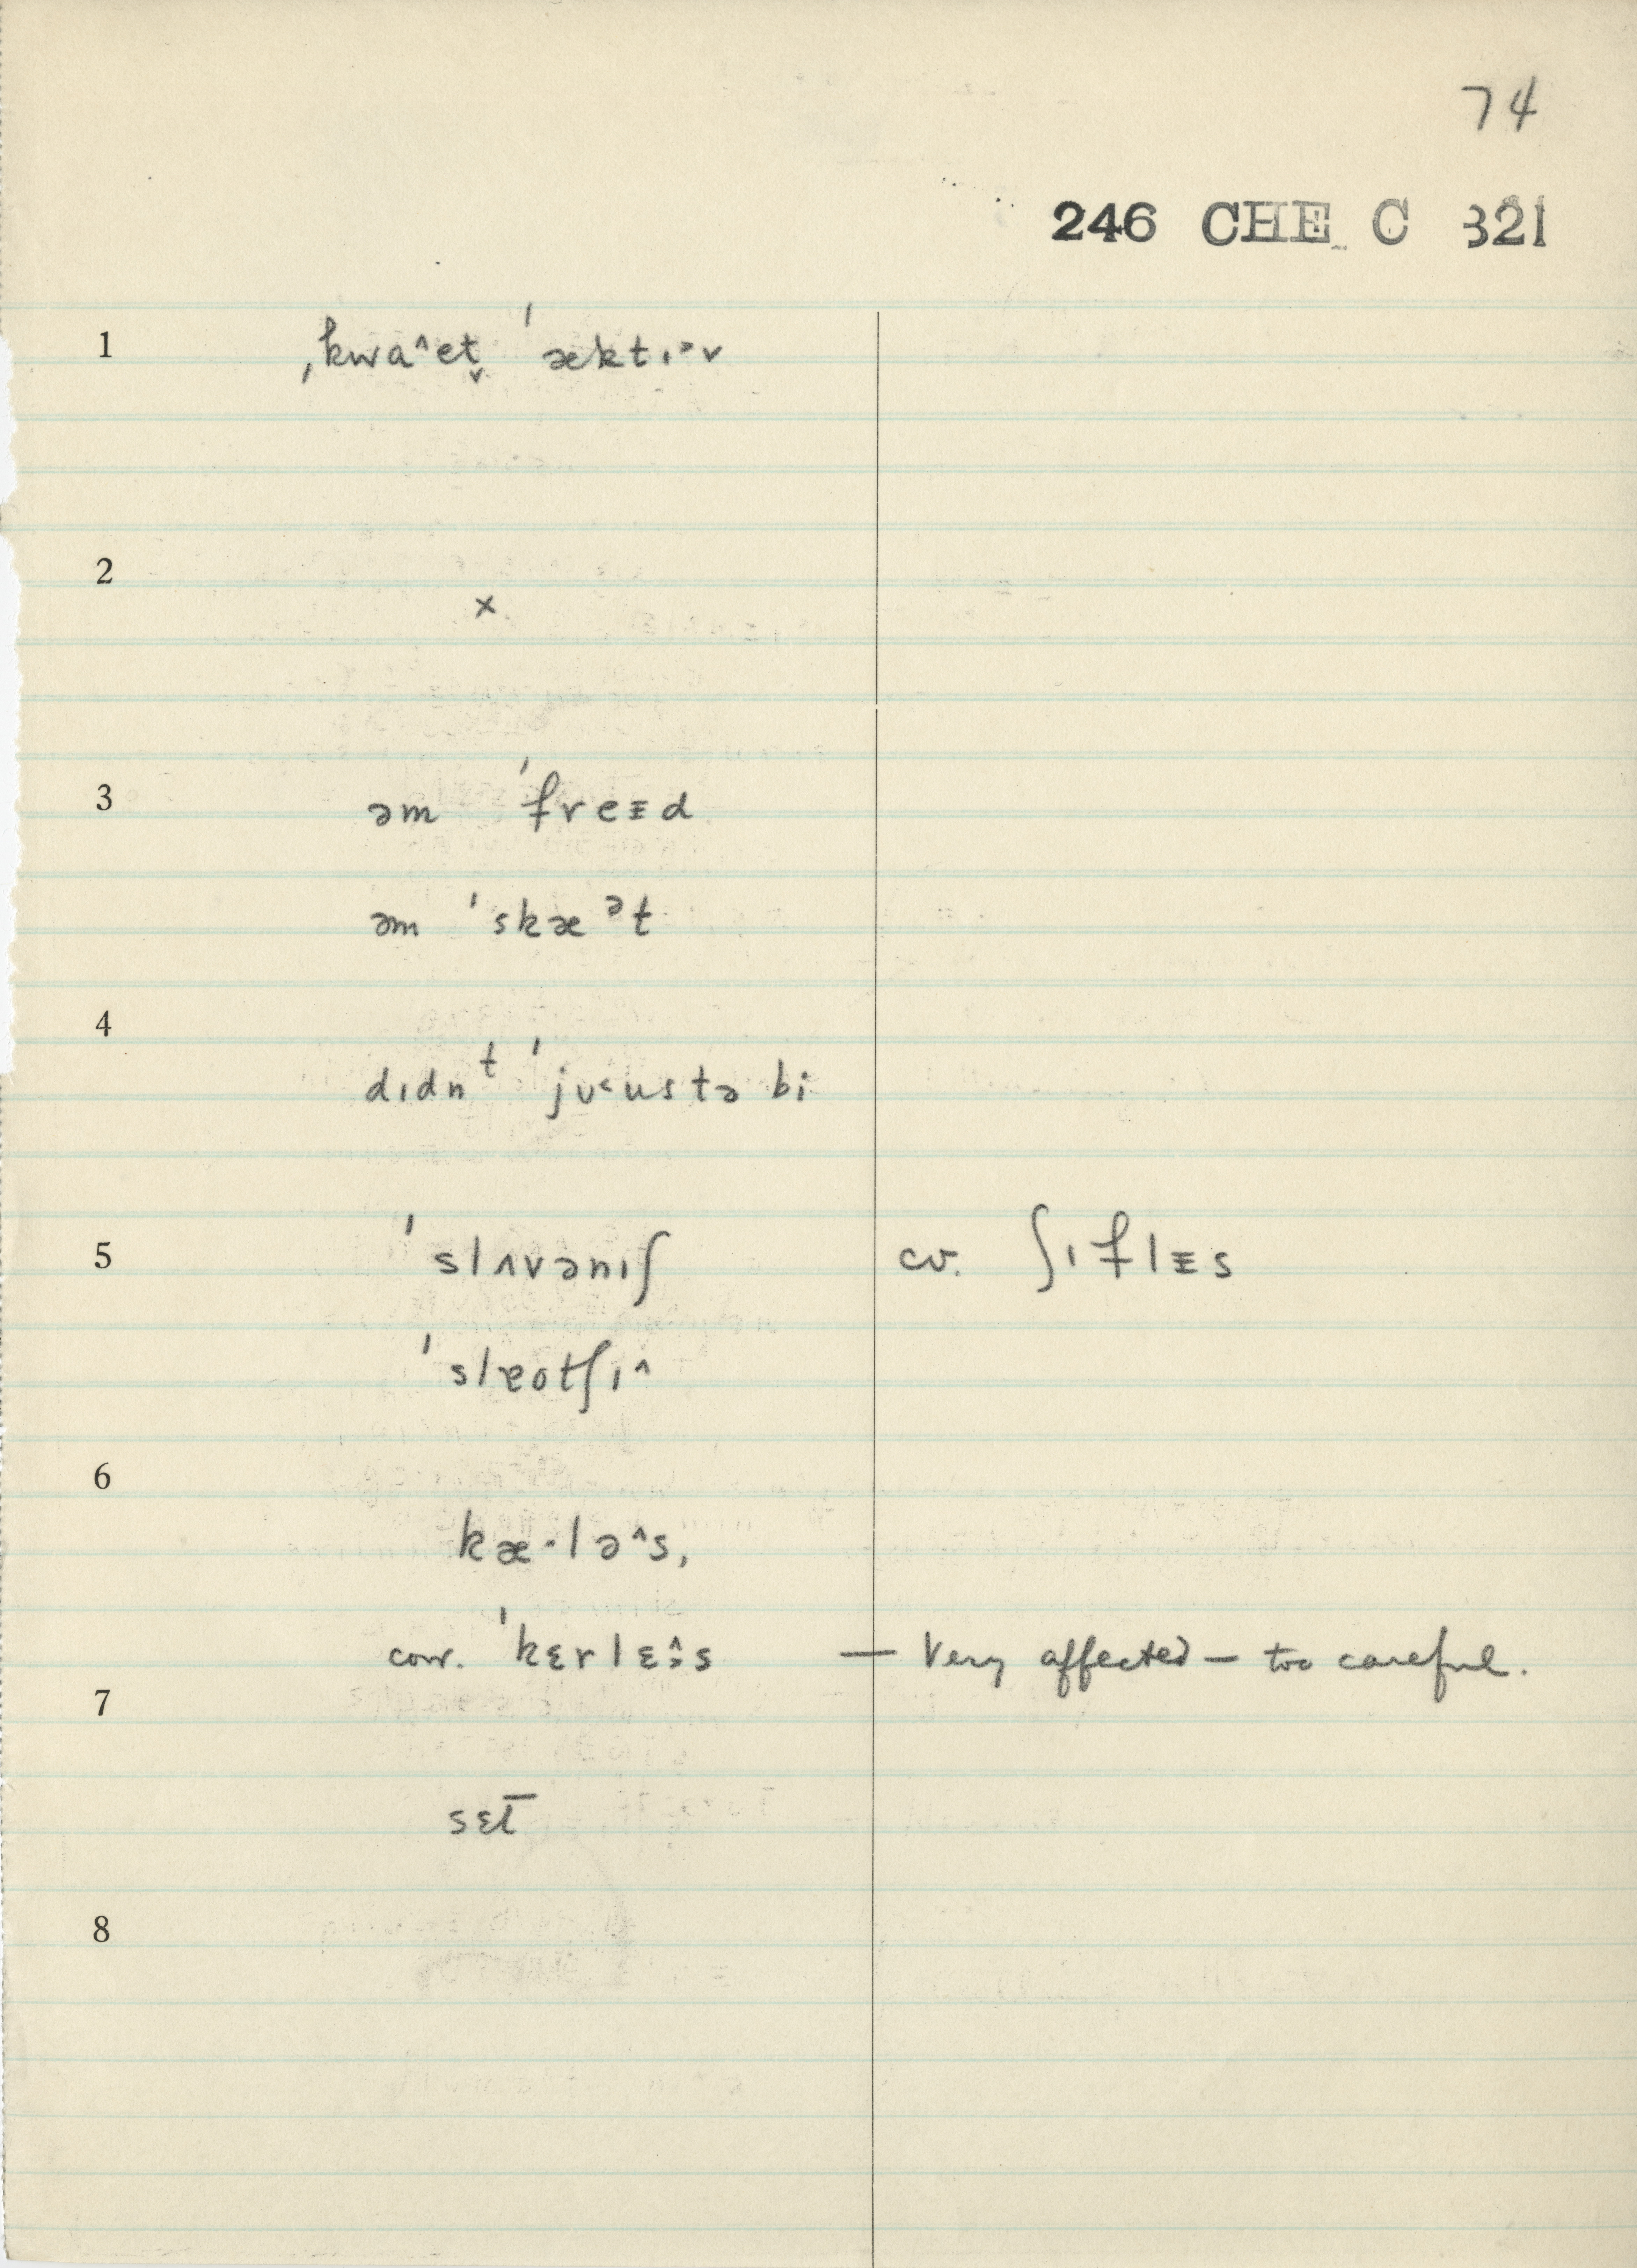 74
246 CHE C 321
1 ˌkwaˆet̬ ˈæktɪ˃v
2 ×
3 əm ˈfreɪd
əm ˈskæᵊt
4 dɪdnᵗ ˈjʊ˂ustə bi
5 ˈslʌvənɪʃ cv. ʃɪflɪs
ˈslæotʃɪˆ
6 kæ·ləˆs,
corr. ˈkɛrlɛˆs — Very affected — too careful.
7
sɛt̄
8